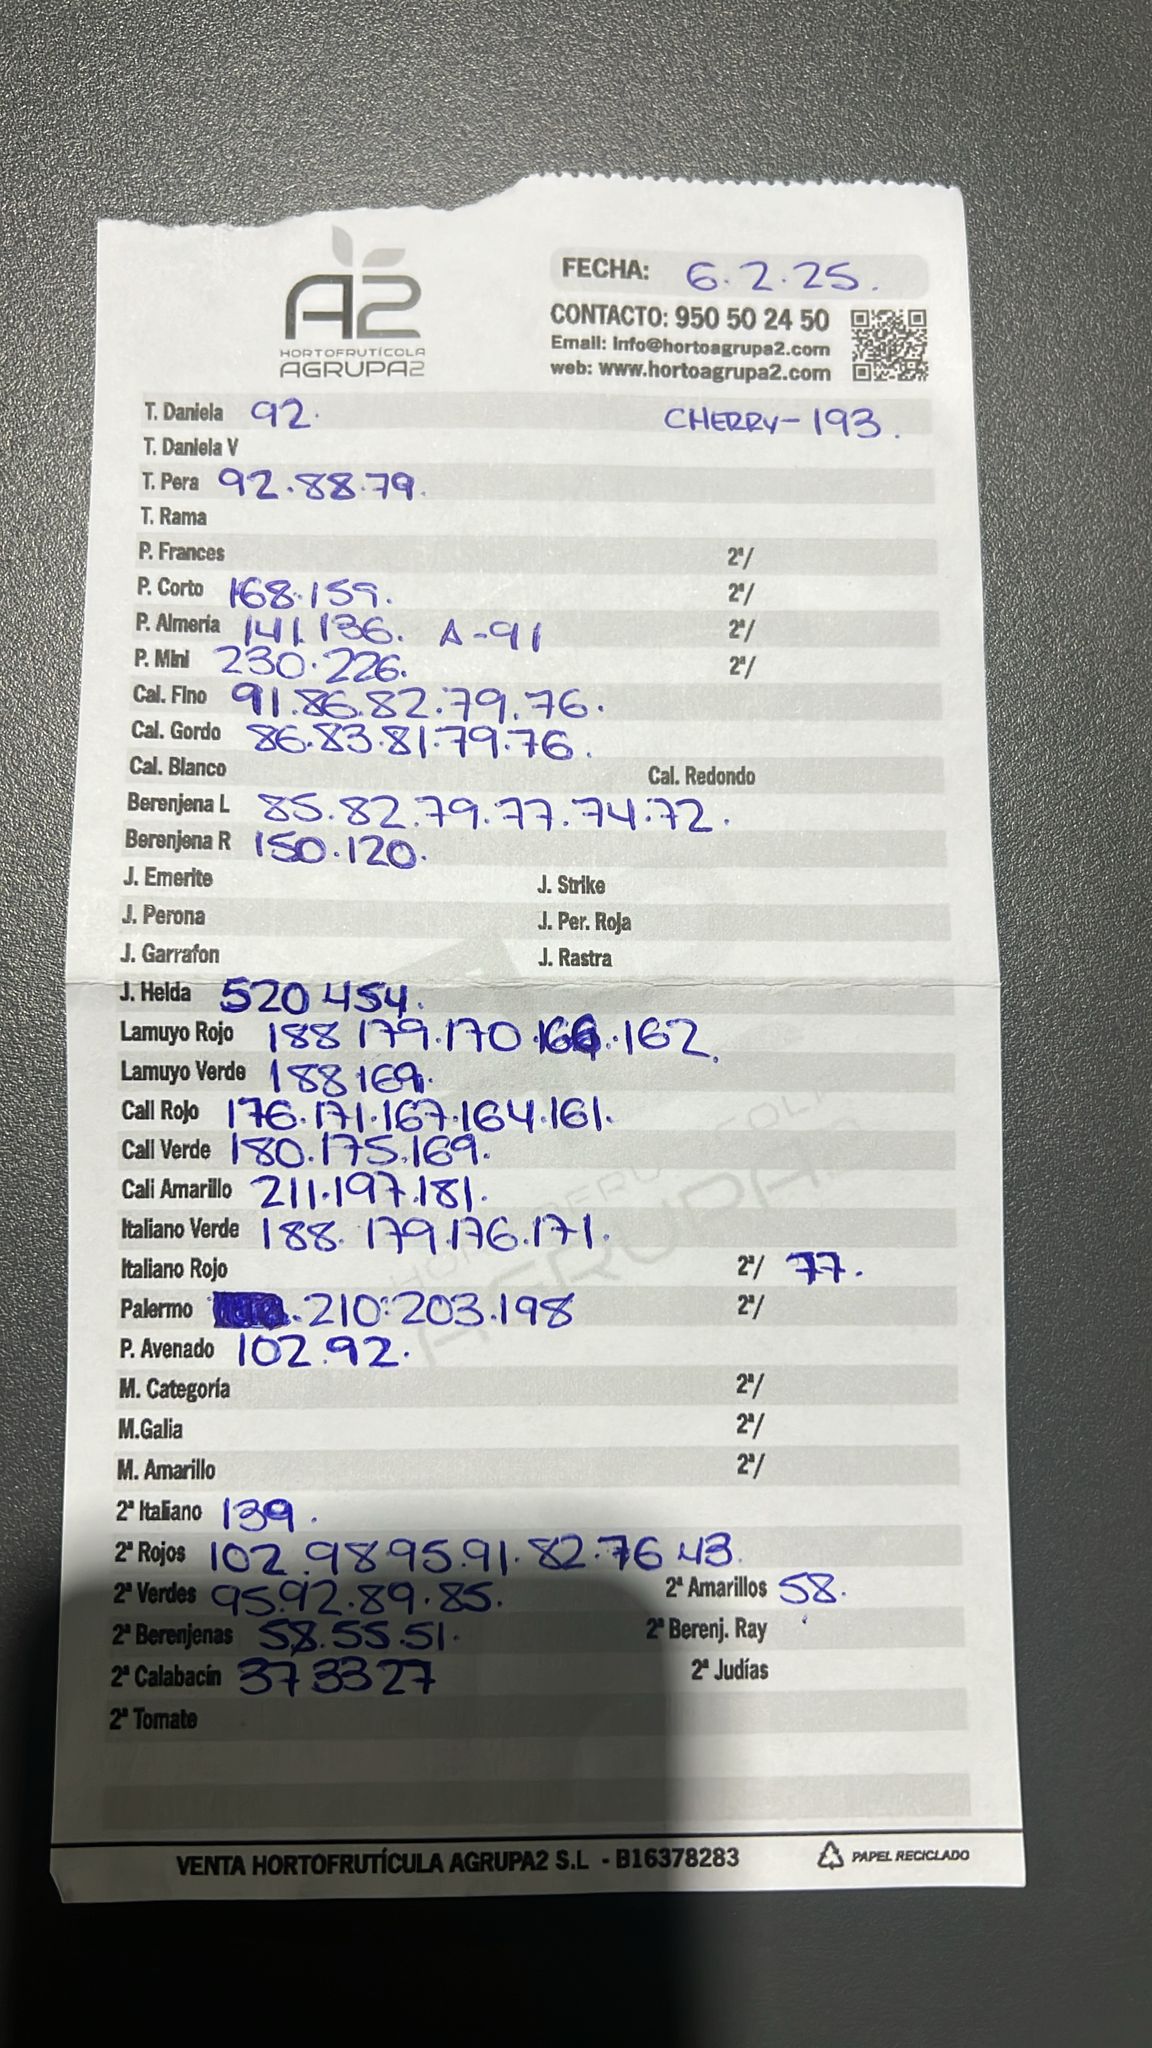 A2
HORTOFRUTÍCOLA
AGRUPA2
FECHA: 6.2.25.
CONTACTO: 950 50 24 50
Email: Info@hortoagrupa2.com
web: www.hortoagrupa2.com
T. Daniela 92. CHERRY-193.
T. Daniela V
T. Pera 92.88.79.
T. Rama
P. Frances 2ª/
P. Corto 168.159. 2ª/
P. Almería 141.136. A-91 2ª/
P. Mini 230.226. 2ª/
Cal. Fino 91.86.82.79.76.
Cal. Gordo 86.83.81.79.76.
Cal. Blanco Cal. Redondo
Berenjena L 85.82.79.77.74.72.
Berenjena R 150.120.
J. Emerite J. Strike
J. Perona J. Per. Roja
J. Garrafon J. Rastra
J. Helda 520 454.
Lamuyo Rojo 188 179.170.166.162.
Lamuyo Verde 188 169.
Cali Rojo 176.171.167.164.161.
Cali Verde 180.175.169.
Cali Amarillo 211.197.181.
Italiano Verde 188. 179.176.171.
Italiano Rojo 2ª/ 77.
Palermo .210.203.198 2ª/
P. Avenado 102.92.
M. Categoría 2ª/
M.Galia 2ª/
M. Amarillo 2ª/
2ª Italiano 139.
2ª Rojos 102.98 95.91.82.76 43.
2ª Verdes 95.92.89.85. 2ª Amarillos 58.
2ª Berenjenas 58.55.51. 2ª Berenj. Ray
2ª Calabacín 37 33 27 2ª Judías
2ª Tomate
VENTA HORTOFRUTÍCULA AGRUPA2 S.L - B16378283 PAPEL RECICLADO